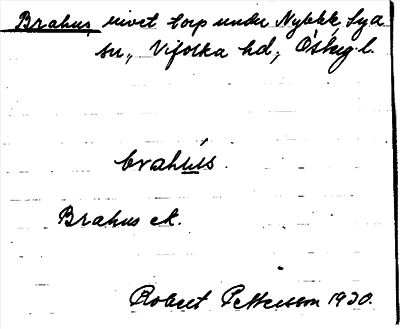 Brahus, rivet torp under Nybble, Sya
sn., Vifolka hd., Östug l.
brahus.
Brahus ek.
Robert Pettersson 1930.